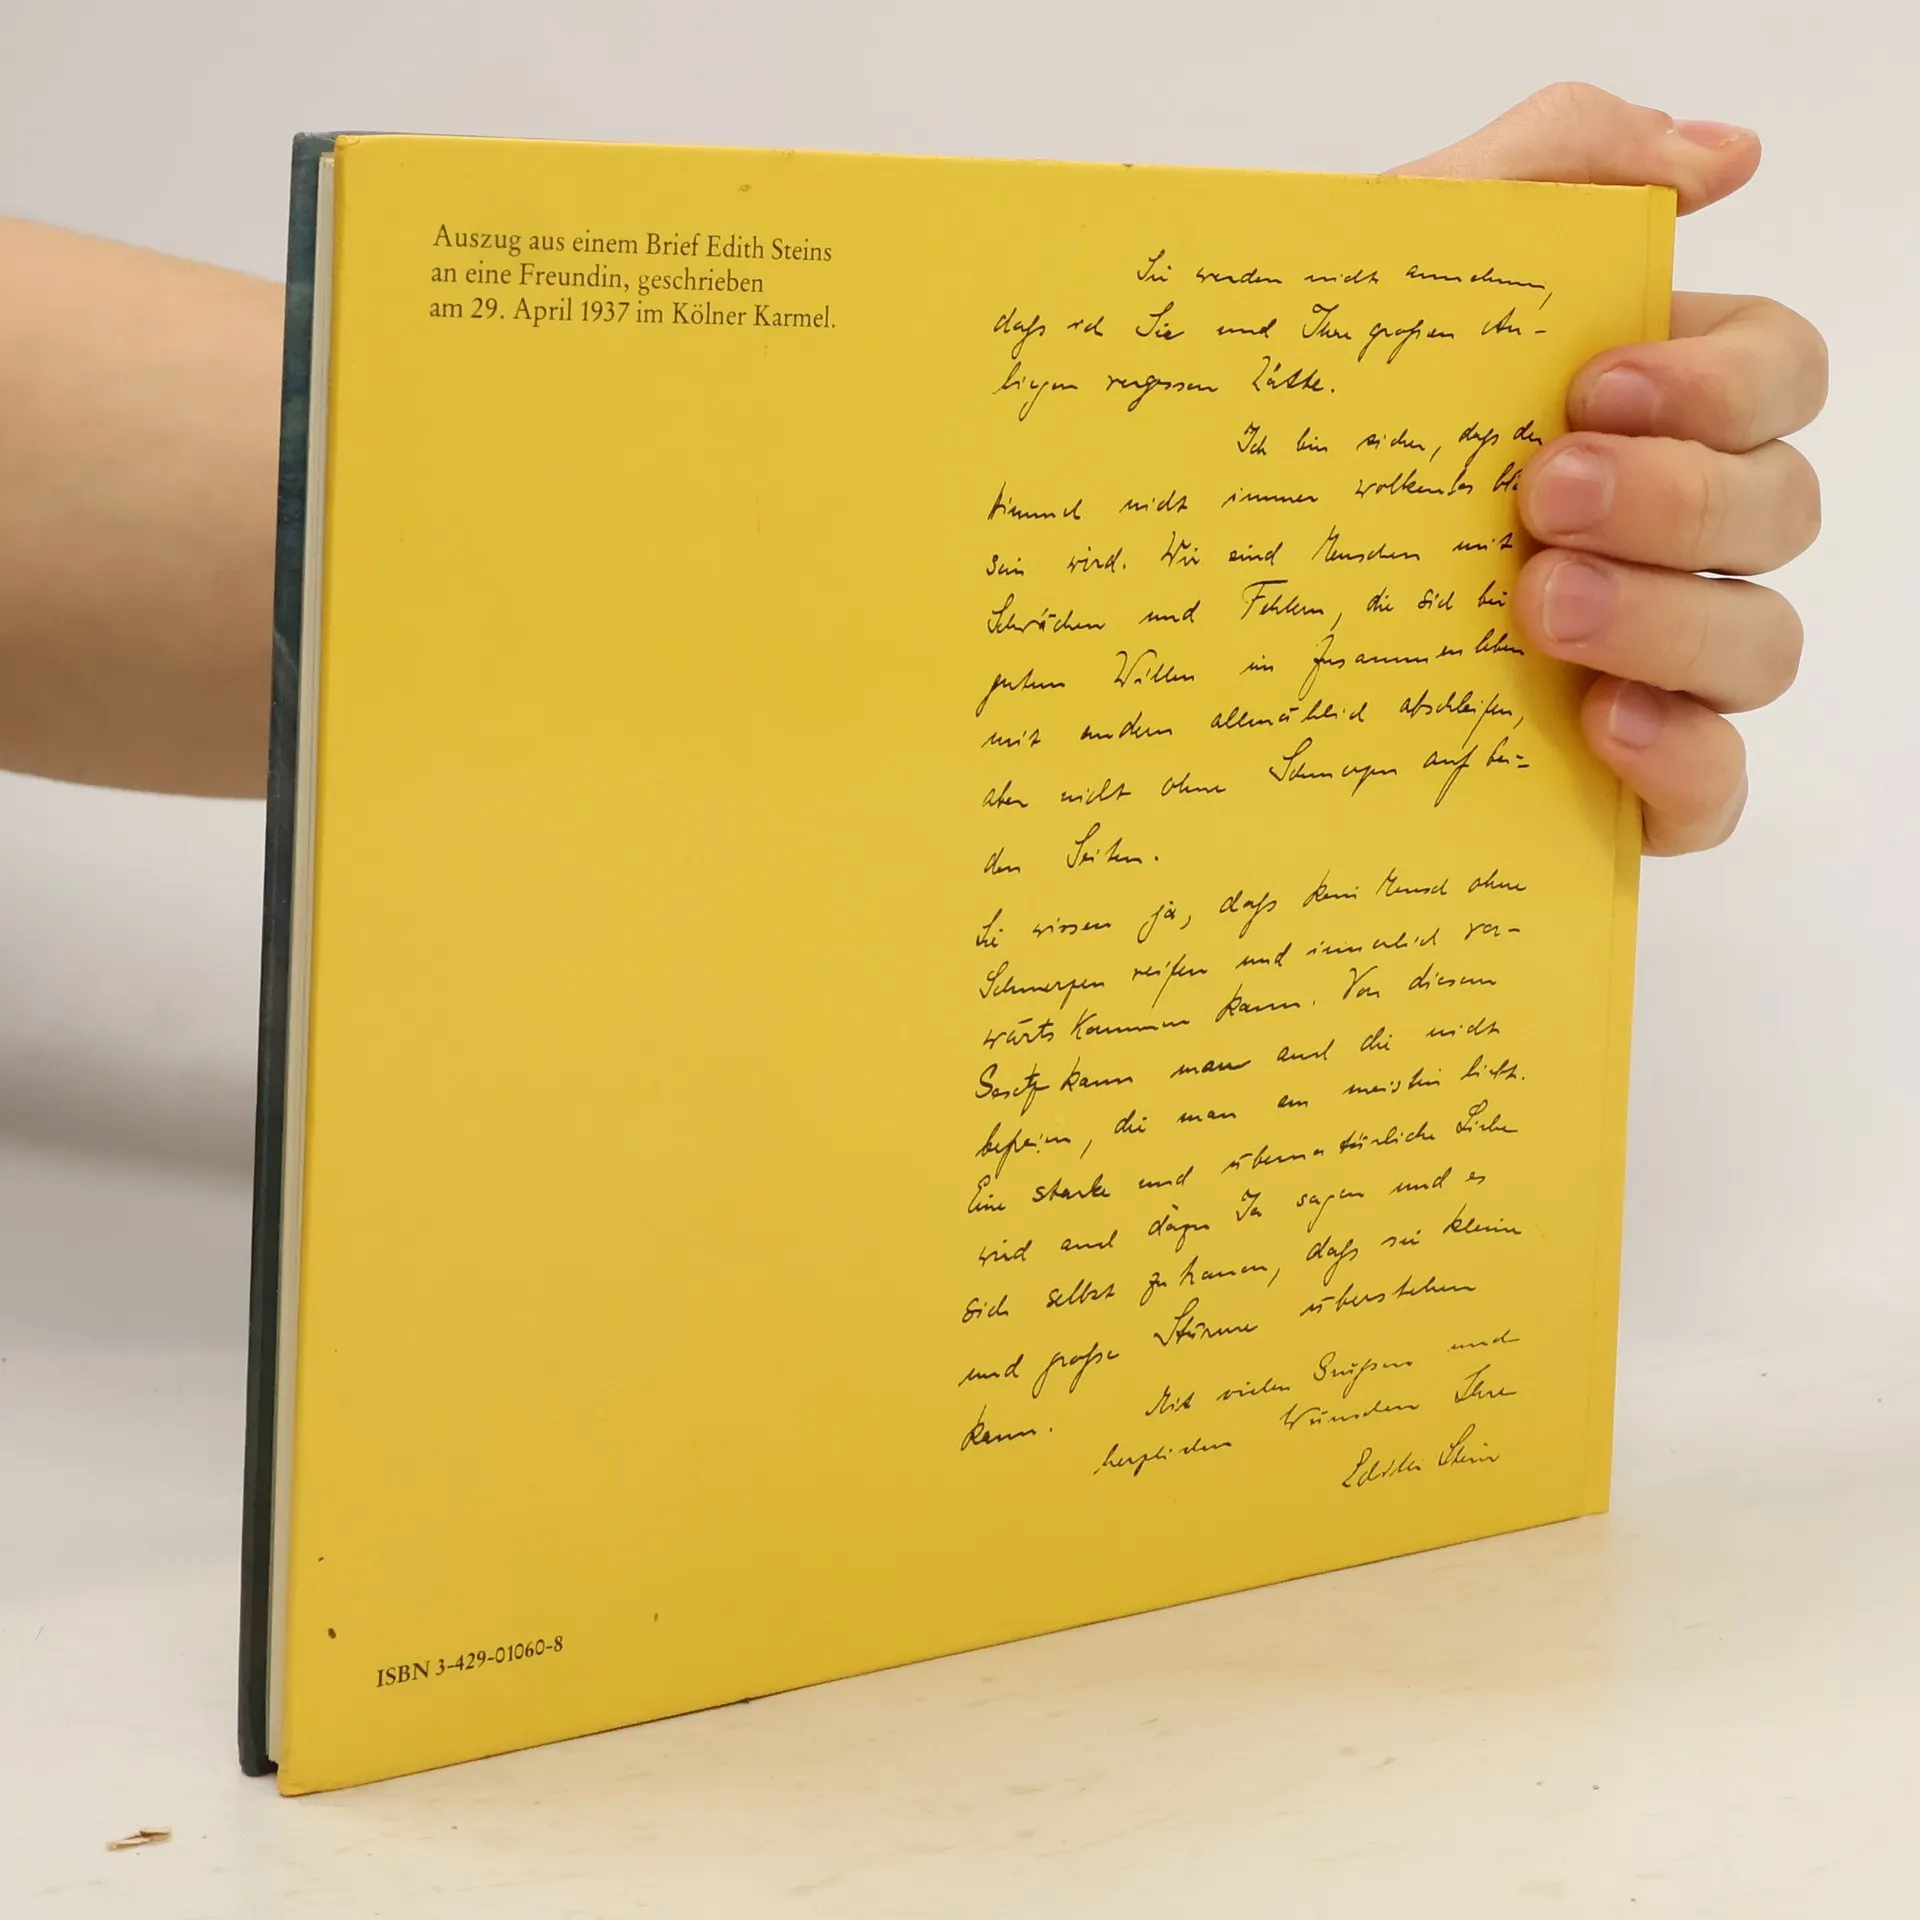 Auszug aus einem Brief Edith Steins
an eine Freundin, geschrieben
am 29. April 1937 im Kölner Karmel.
Sie werden nicht annehmen,
daß ich Sie und Ihre großen An-
liegen vergessen hätte.
Ich bin sicher, daß der
Himmel nicht immer wolkenlos
sein wird. Wir sind Menschen mit
Schwächen und Fehlern, die sich bei
gutem Willen im Zusammenleben
mit andern allmählich abschleifen,
aber nicht ohne Schmerzen auf bei-
den Seiten.
Sie wissen ja, daß kein Mensch ohne
Schmerzen reifen und innerlich vor-
wärts kommen kann. Von diesem
Gesetz kann man auch die nicht
befreien, die man am meisten liebt.
Eine starke und übernatürliche Liebe
wird auch dazu Ja sagen und es
sich selbst zutrauen, daß sie kleine
und große Stürme überstehen
kann. Mit vielen Grüßen und
herzlichen Wünschen Ihre
Edith Stein
ISBN 3-429-01060-8